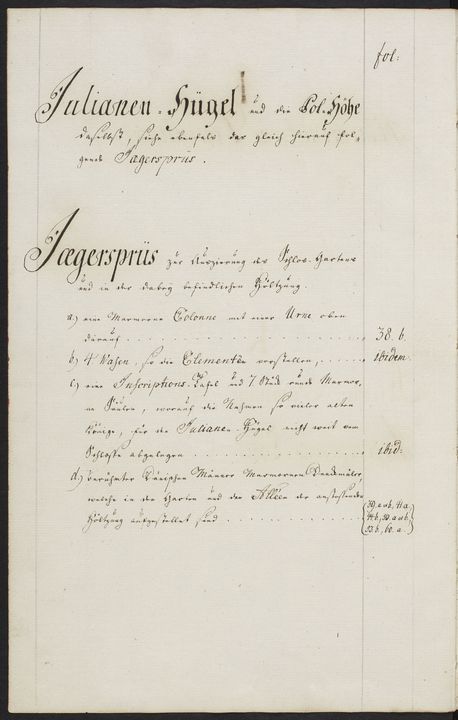 fol:
Julianen-Hügel und die Pol-Höhe
daselbst, siehe ebenfals das gleich hierauf fol-
gende Jægersprüs.
Jægersprüs zur Auszierung des Schlos-Gartens
und in der dabey befindlichen Höltzung.
a.) eine Marmorne Colonne mit einer Urne oben
darauf . . . . . . . . . . . . . . . . . . 38. b.
b.) 4 Vasen, so die Elemente vorstellen, . . . . ibidem.
c.) eine Inscriptions-Tafel und 7. Stück runde Marmor-
ne Säulen, worauf die Nahmen so vieler alten
Könige, für die Julianen-Hügel nicht weit vom
Schlosse abgelegen . . . . . . . . . . . . . ibid:
d.) berühmter Dänischen Männer Marmornen Denkmäler,
welche in den Garten und den Alléen der anstossenden
Höltzung aufgestellet sind . . . . . . . . . .